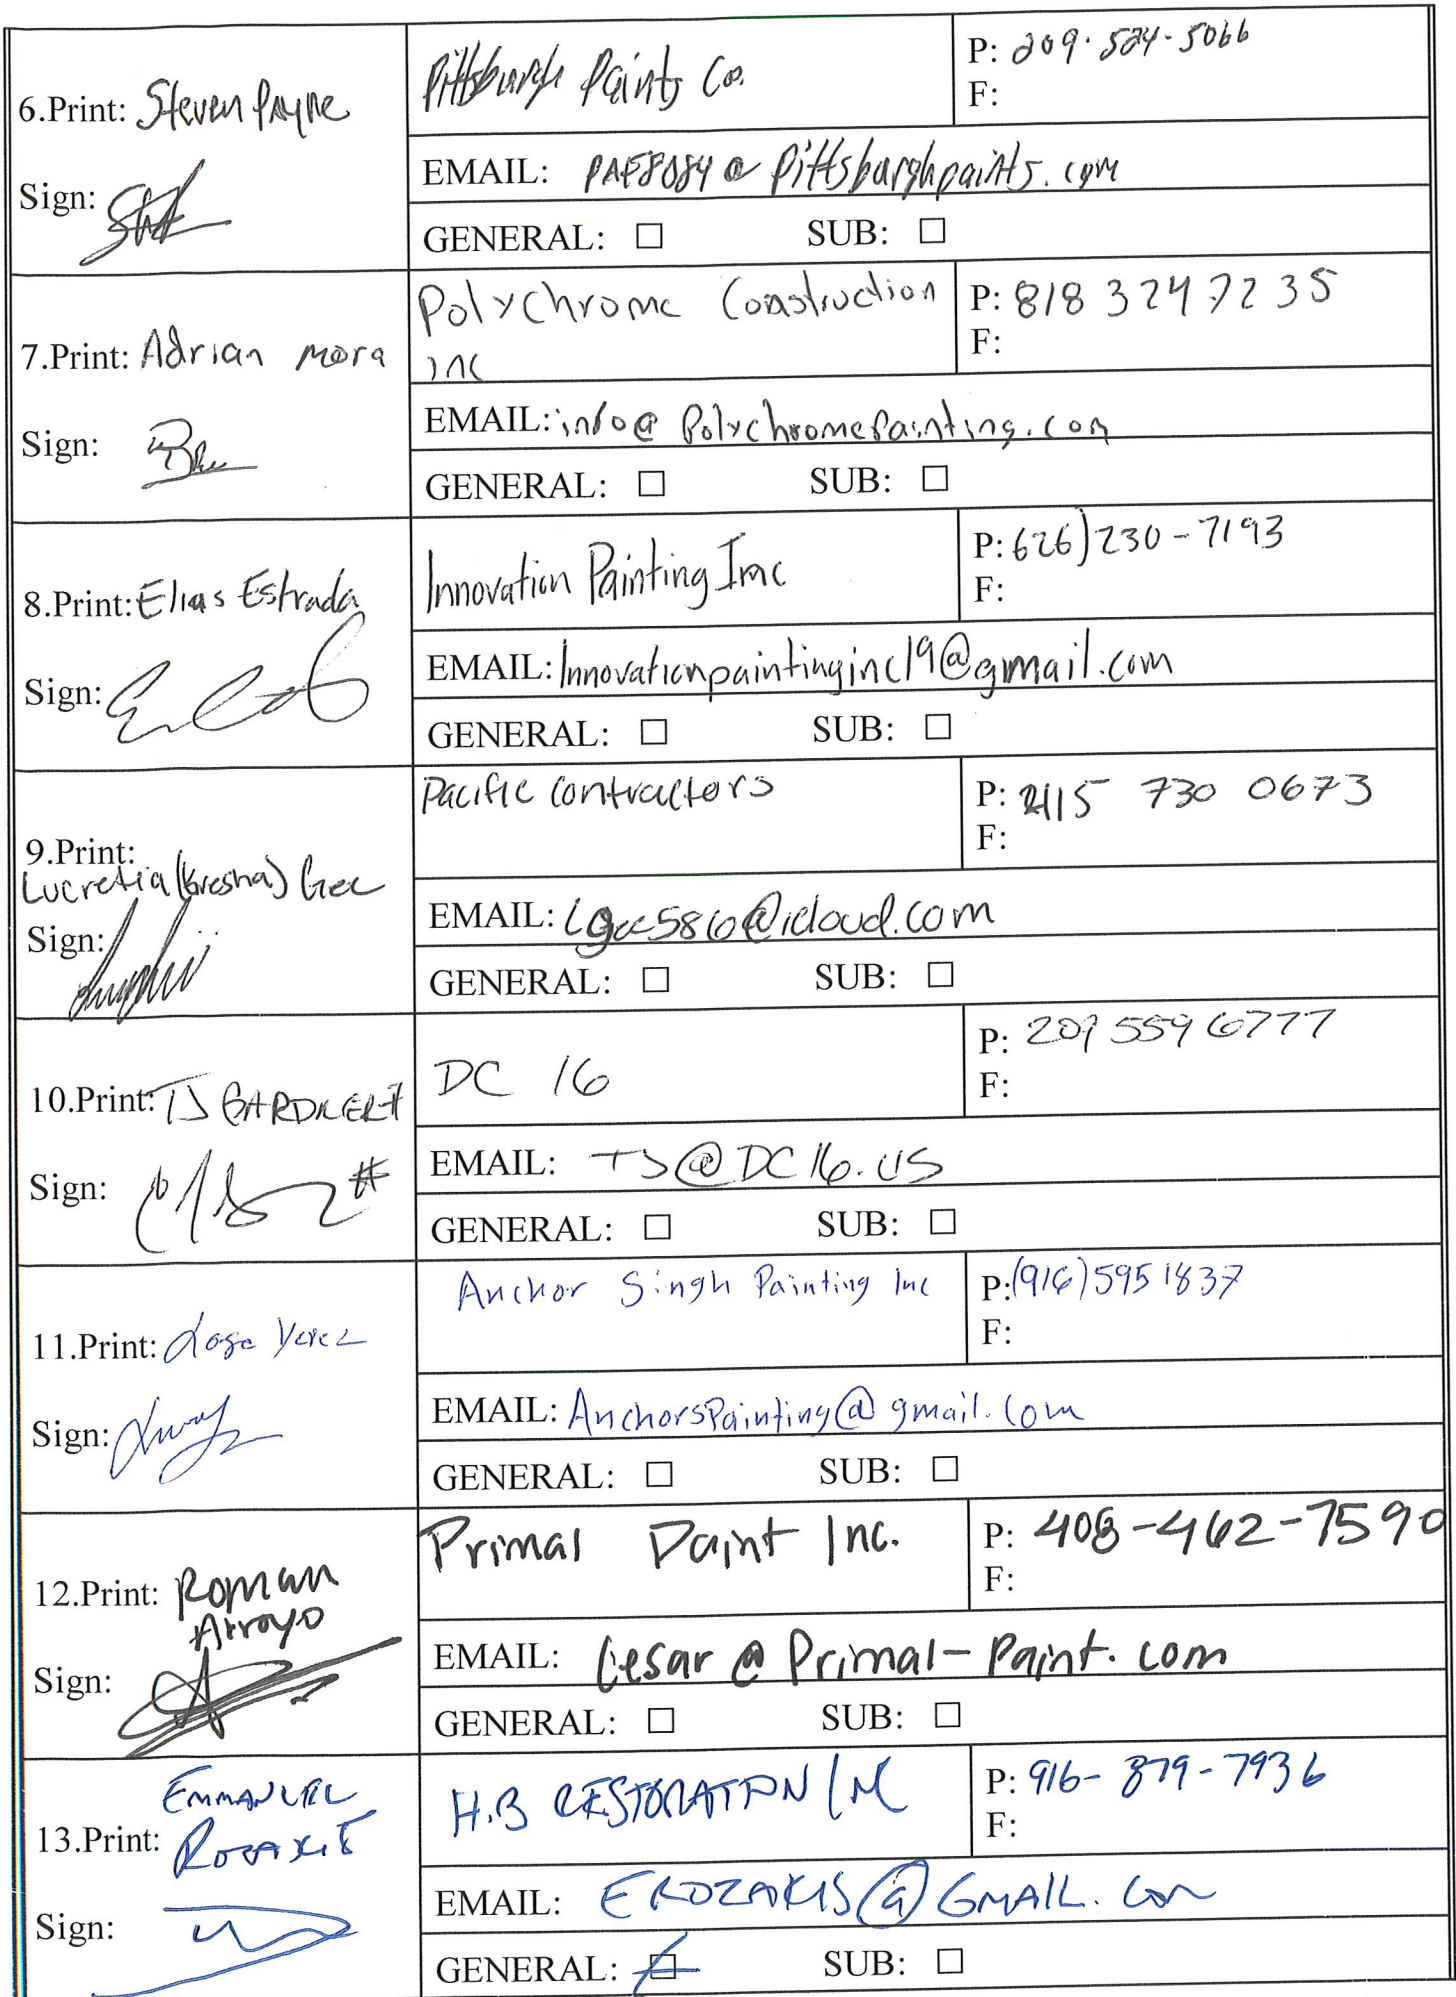 6.Print: Steven Payne
Sign:
Pittsburgh Paints Co.
P: 209-524-5066
F:
EMAIL: PAF8084@pittsburghpaints.com
GENERAL: ☐ SUB: ☐
7.Print: Adrian Mora
Sign:
Polychrome Construction
inc
P: 818 324 7235
F:
EMAIL: info@Polychromepainting.com
GENERAL: ☐ SUB: ☐
8.Print: Elias Estrada
Sign:
Innovation Painting Inc
P: 626)230-7193
F:
EMAIL: Innovationpaintinginc19@gmail.com
GENERAL: ☐ SUB: ☐
9.Print:
Lucretia (Gresha) Gee
Sign:
Pacific Contractors
P: 415 730 0673
F:
EMAIL: Lgee5810@icloud.com
GENERAL: ☐ SUB: ☐
10.Print: TJ GARDNER
Sign:
DC 16
P: 209 559 6777
F:
EMAIL: TJ@DC16.US
GENERAL: ☐ SUB: ☐
11.Print:
Sign:
Anchor Singh Painting Inc
P: (916)5951837
F:
EMAIL: AnchorsPainting@gmail.com
GENERAL: ☐ SUB: ☐
12.Print: Roman
Arroyo
Sign:
Primal Paint Inc.
P: 408-462-7590
F:
EMAIL: Cesar@Primal-Paint.com
GENERAL: ☐ SUB: ☐
EMMANUEL
13.Print: ROZAKIS
Sign:
H.B RESTORATION INC
P: 916-879-7936
F:
EMAIL: EROZAKIS@GMAIL.COM
GENERAL: ☒ SUB: ☐